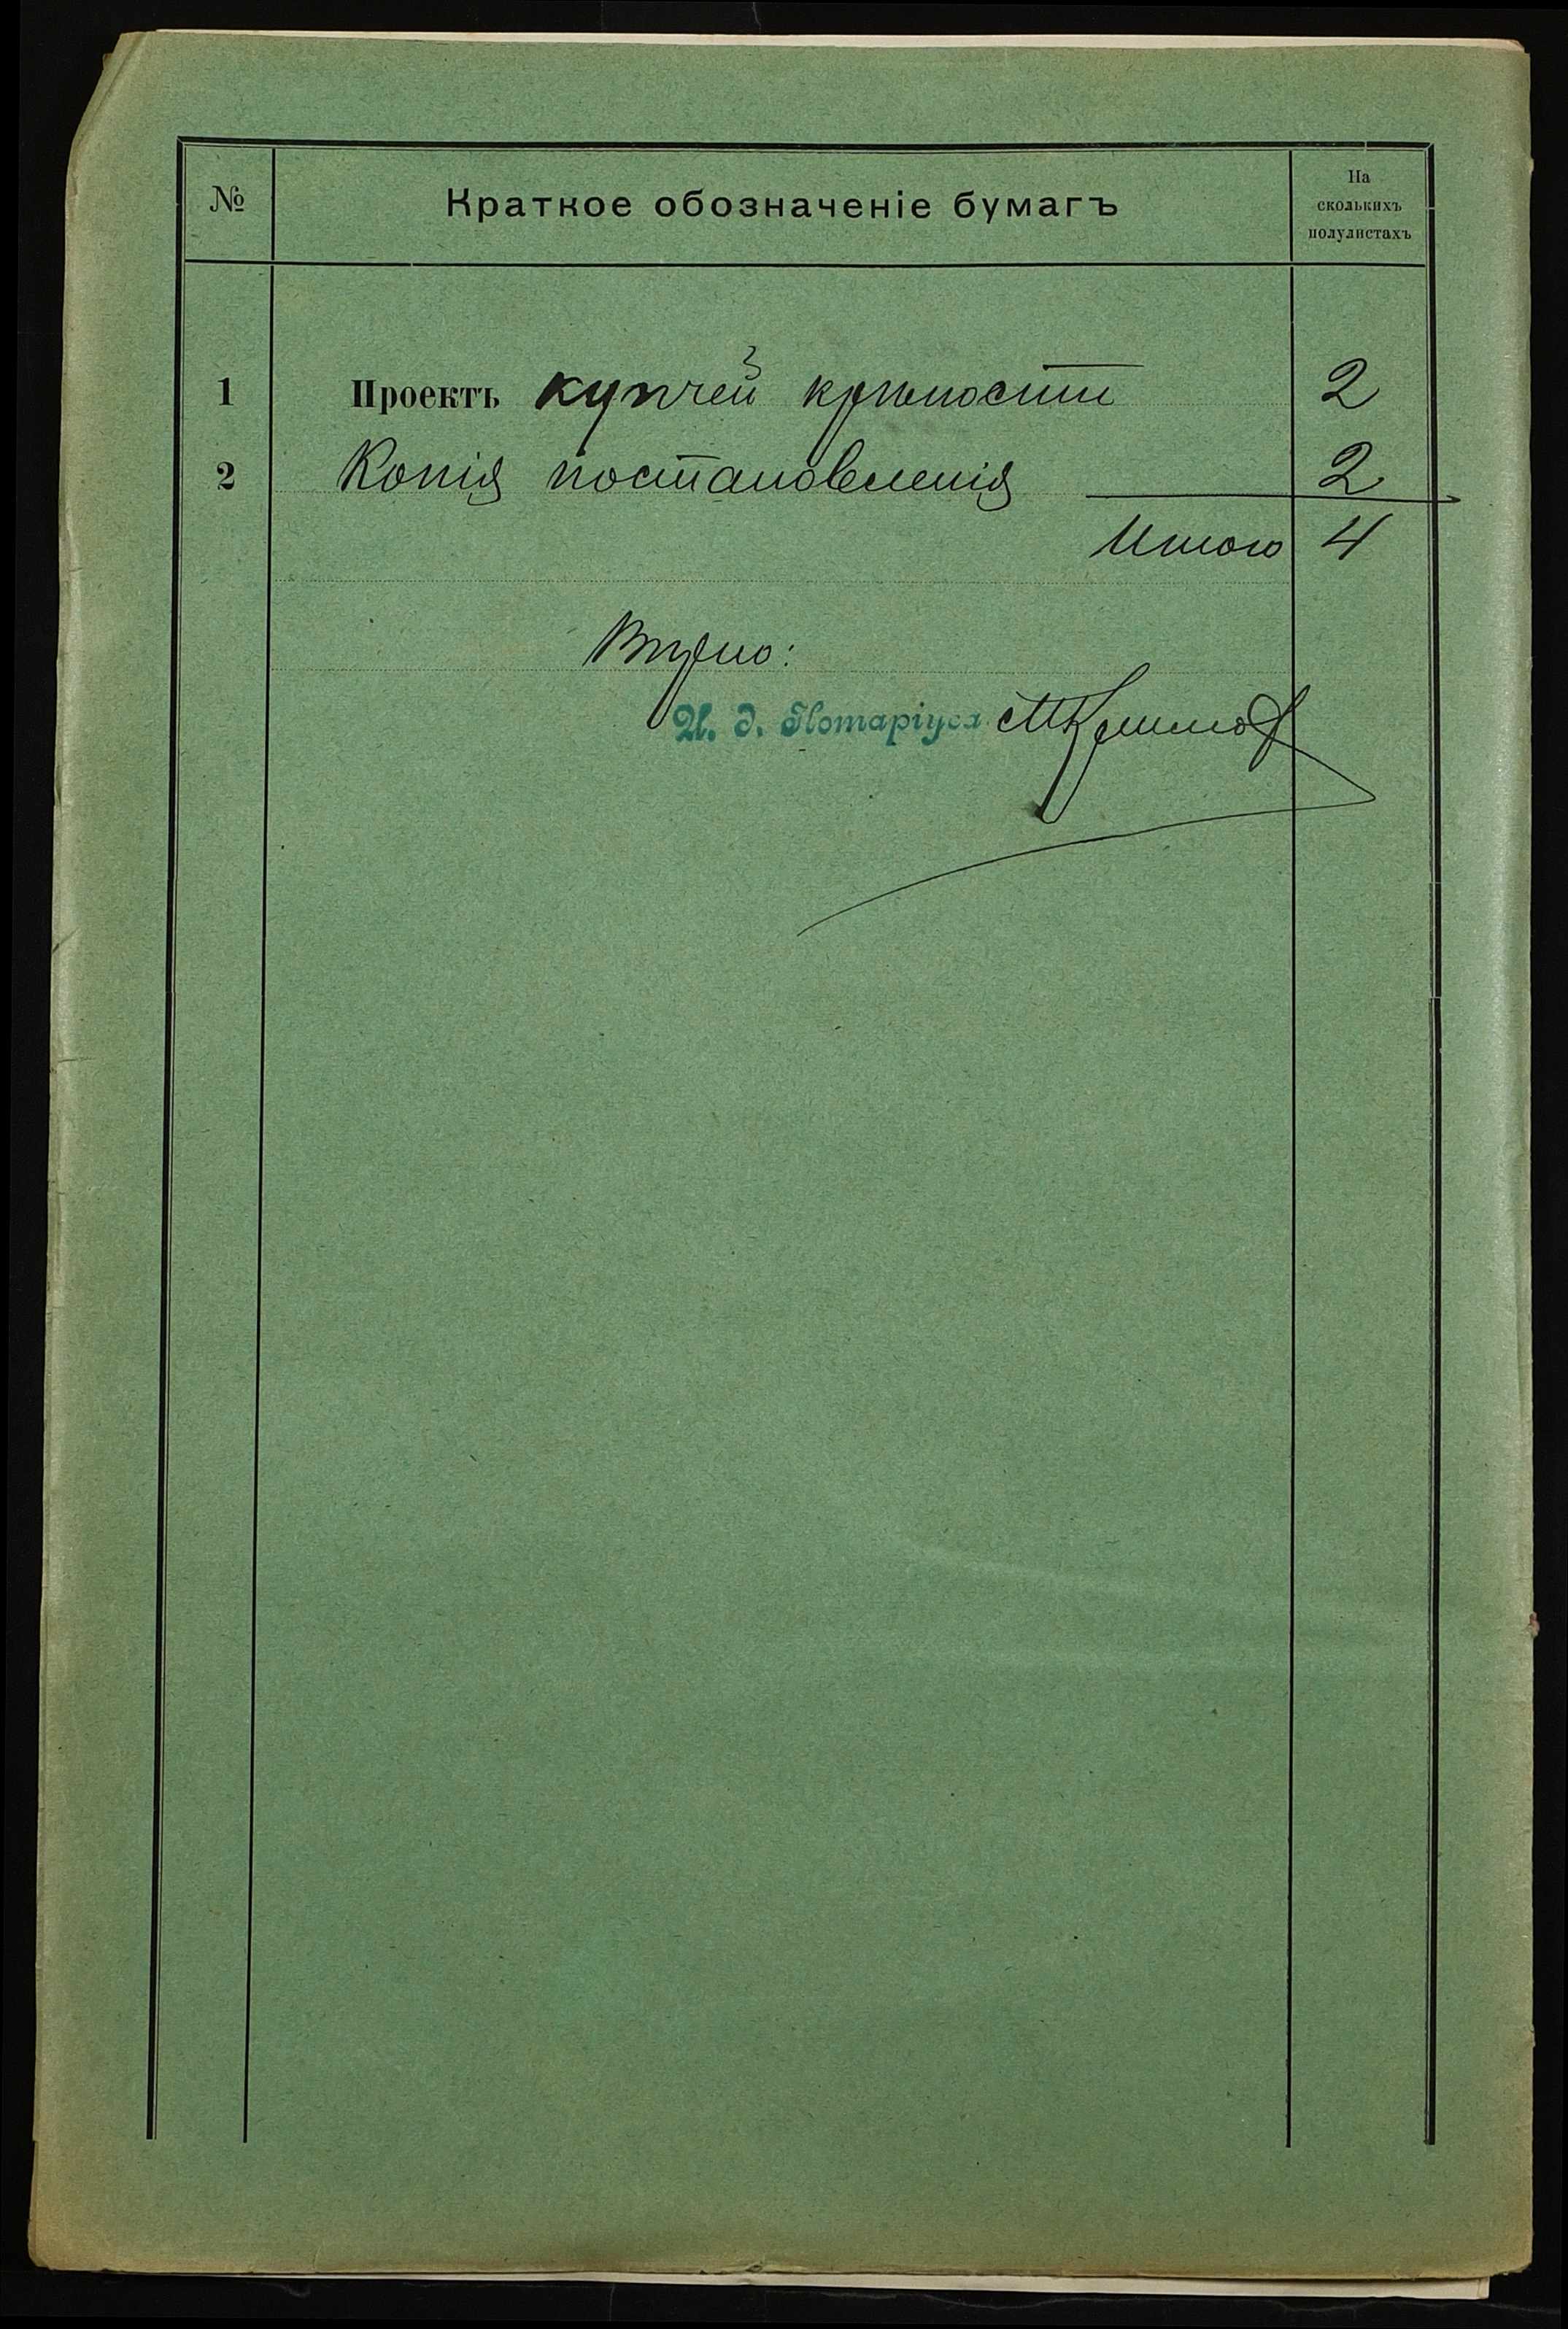 № Краткое обозначеніе бумагъ На
сколькихъ
полулистахъ
1 Проектъ купчей крѣпости 2
2 Копія постановленія 2
Итого 4
Вѣрно:
И. д. Нотаріуса